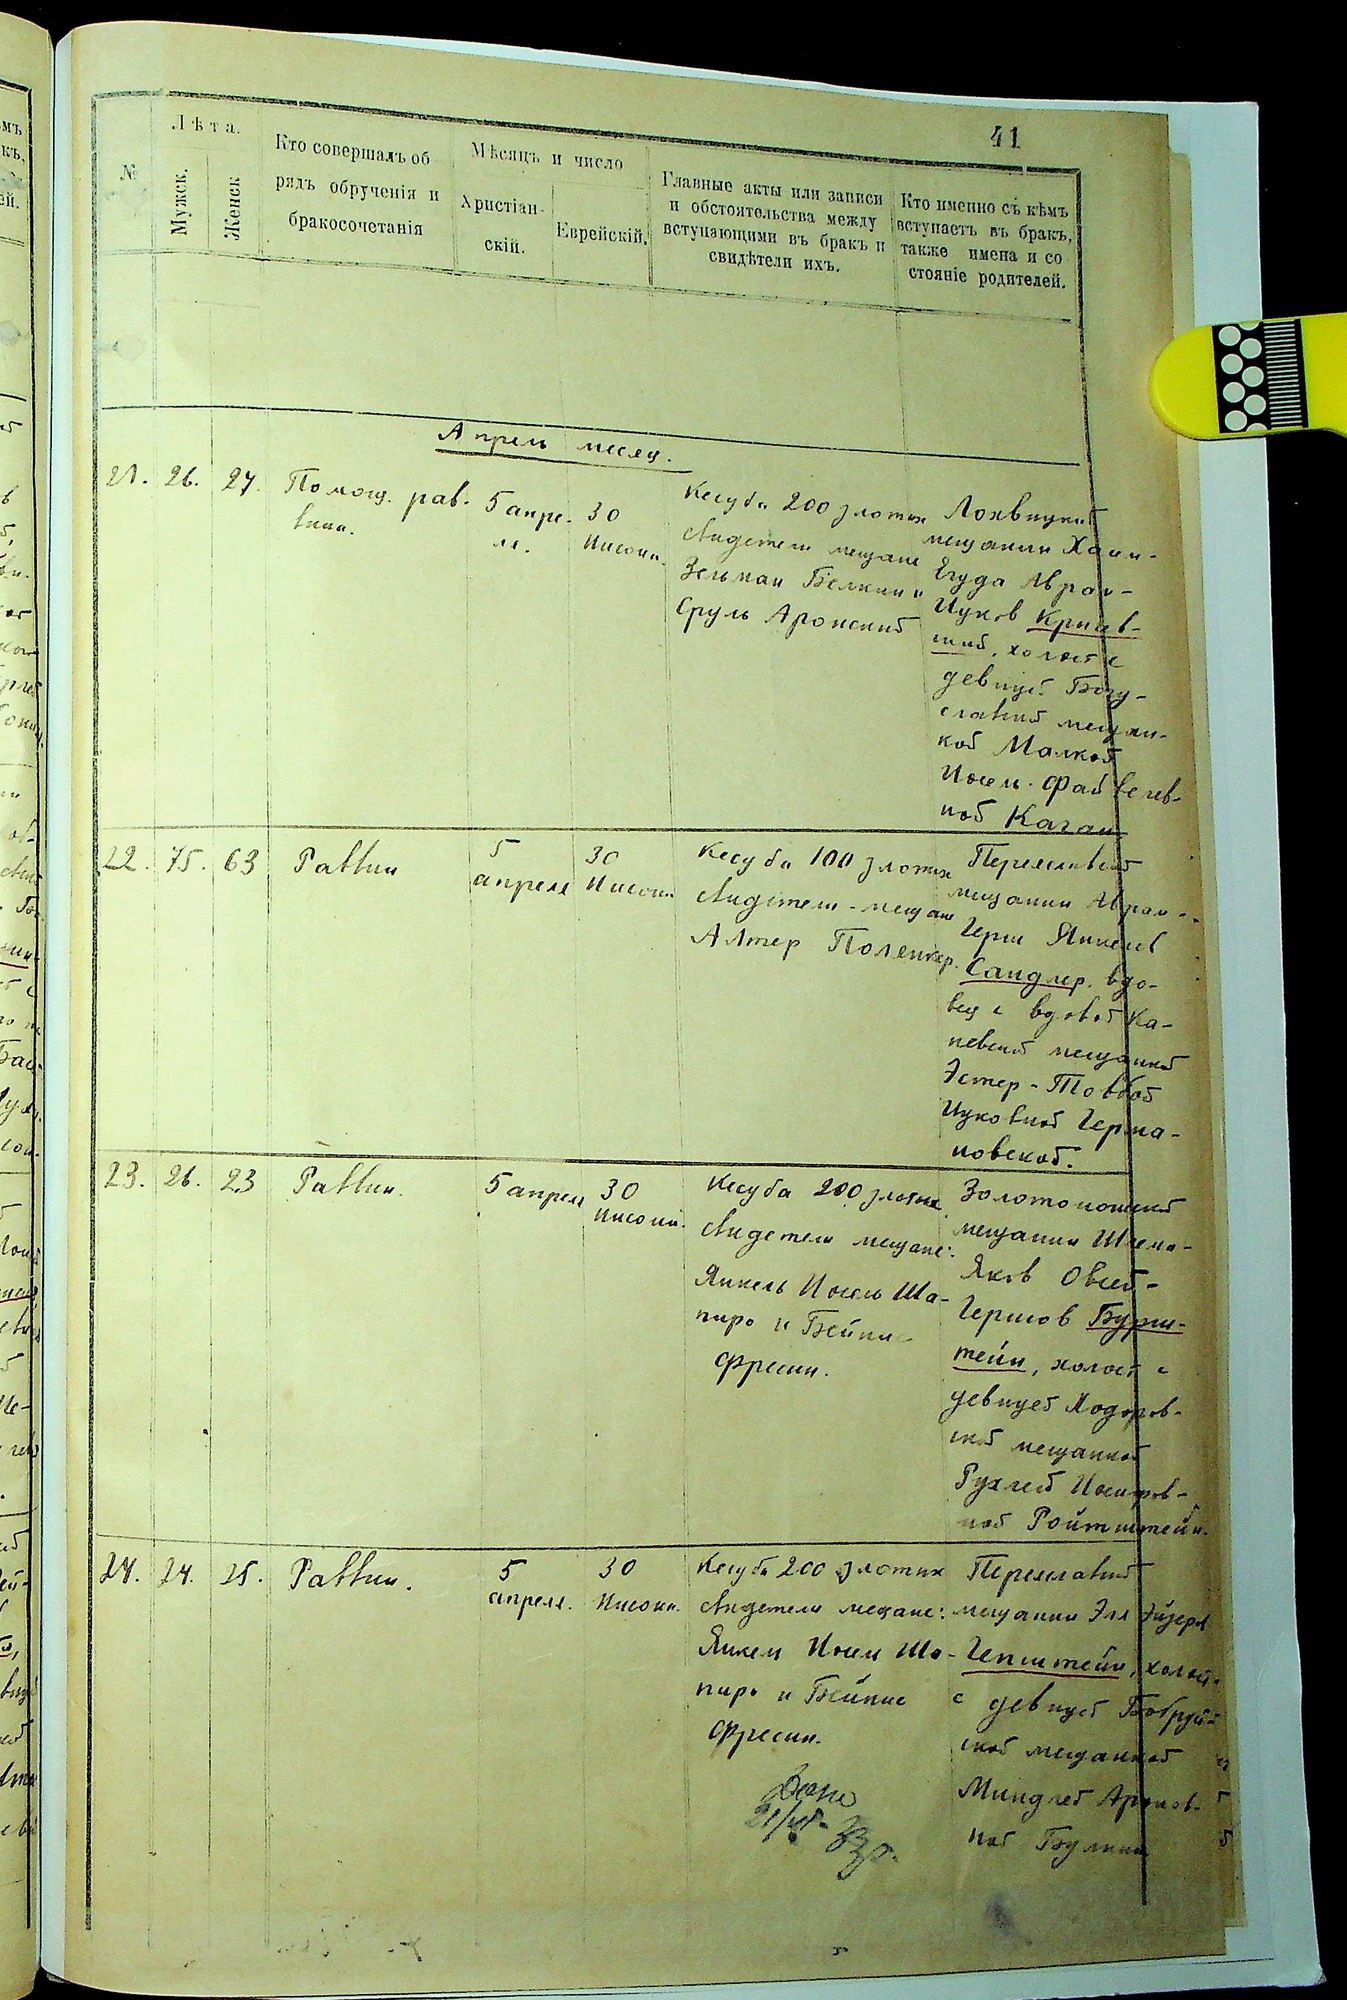 41
№
Лѣта.
Мужск.
Женск
Кто совершалъ об
рядъ обрученія и
бракосочетанія
Мѣсяцъ и число
Христіан-
скій.
Еврейскій.
Главные акты или записи
и обстоятельства между
вступающими въ бракъ и
свидѣтели ихъ.
Кто именно съ кѣмъ
вступаетъ въ бракъ,
также имена и со
стояніе родителей.
Апрель месяц.
21. 26. 27.
Помощ. рав-
вина.
5 апре-
ля.
30
Нисона.
Кесуба 200 злотих
свидетели мещане
Зельман Белкин и
Сруль Аронский
Лохвицкий
мещанин Хаим-
Егуда Аврам-
Ицков Криев-
ский, холост с
девицей Богу-
славской мещан-
кой Малкой
Иосель-Файвелев-
ной Каган
22. 75. 63
Раввин
5
апреля
30
Нисона
Кесуба 100 злотих
свидетели - мещане
Алтер Поленкер.
Переяславский
мещанин Аврам-
Герш Янкелев
Сандлер, вдо-
вец с вдовой Ка-
невской мещанкой
Эстер-Товбой
Ицковной Герма-
новской.
23. 26. 23
Раввин.
5 апреля
30
Нисона.
Кесуба 200 злотих
свидетели мещане:
Янкель Иосель Ша-
пиро и Бейнис
Фресин.
Золотоношский
мещанин Шлема-
Яков Овсей-
Гершов Бурш-
тейн, холост с
девицей Ходоров-
ской мещанкой
Рухлей Иосифов-
ной Ройтштейн.
24. 24. 25.
Раввин.
5
апреля.
30
Нисона.
Кесуба 200 злотих
свидетели мещане:
Янкель Иосел Ша-
пиро и Бейнис
Фресин.
Переяславский
мещанин Эля Эйзеров
Гепштейн, холост
с девицей Бобруй-
ской мещанкой
Миндлей Аронов-
ной Булкин